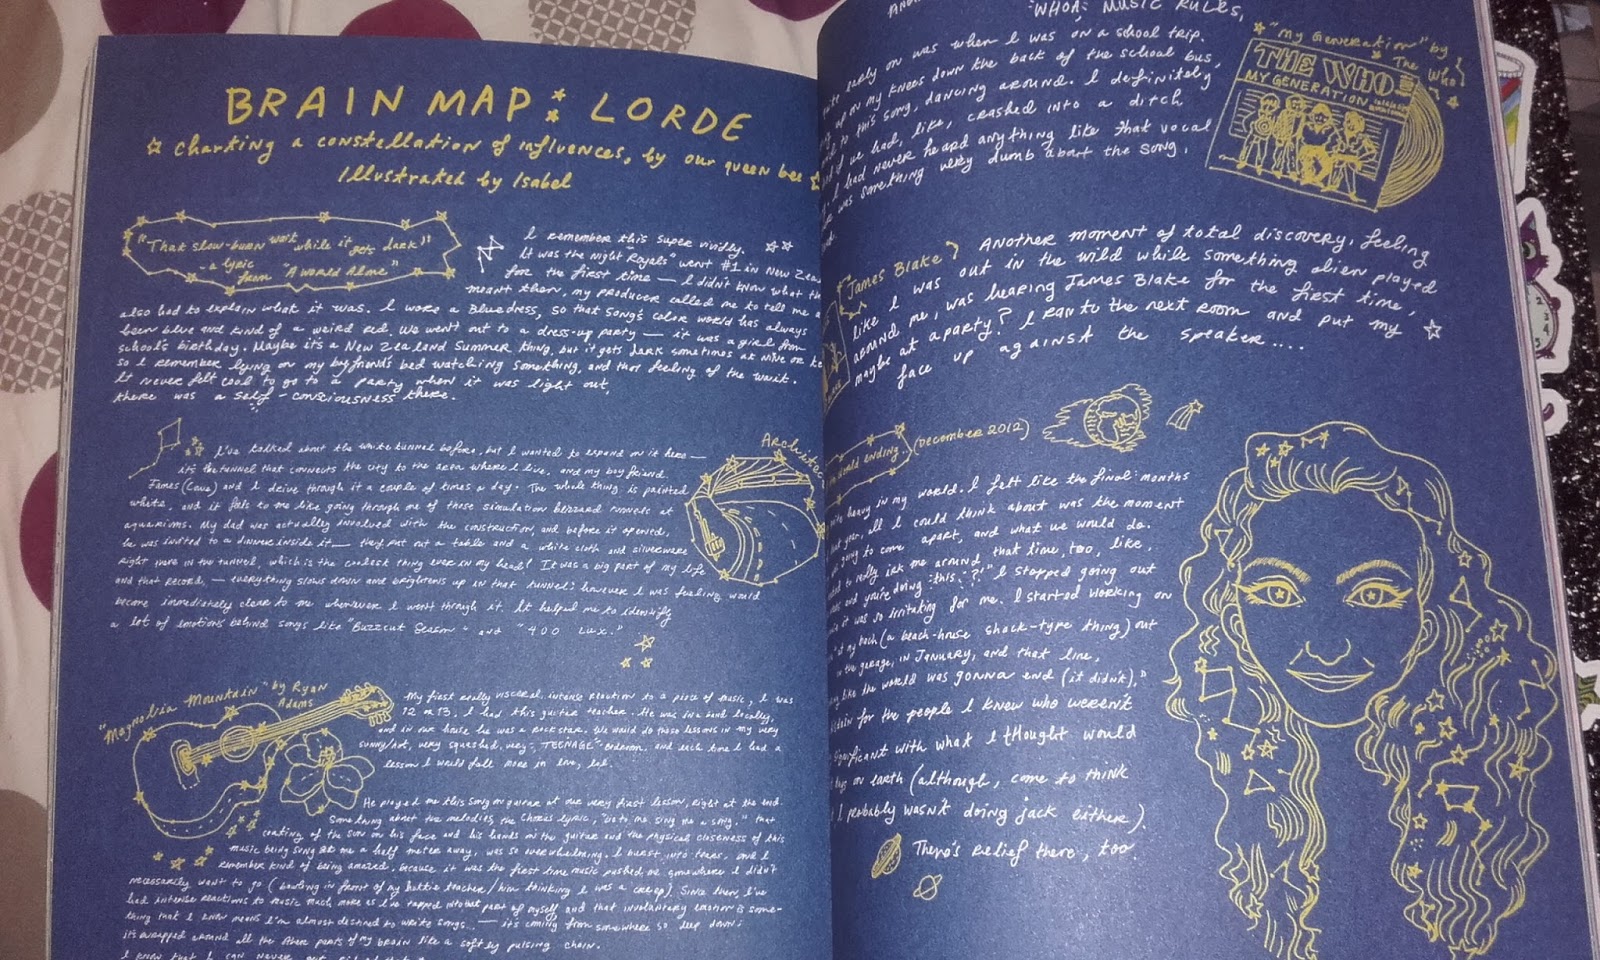 BRAIN MAP: LORDE
Charting a constellation of influences, by our queen bee
Illustrated by Isabel
"That slow-burn wait while it gets dark"
- a lyric
from "A World Alone"
I remember this super vividly.
It was the night "Royals" went #1 in New
for the first time — I didn't know what
meant then, my producer called me to tell me
also had to explain what it was. I wore a blue dress, so that song's color world has always
been blue and kind of a weird red. We went out to a dress-up party — it was a girl from
school's birthday. Maybe it's a New Zealand summer thing, but it gets dark sometimes at nine or
so I remember lying on my boyfriend's bed watching something, and that feeling of the wait.
It never felt cool to go to a party when it was light out,
there was a self-consciousness there.
Archite
I've talked about the white tunnel before, but I wanted to expand on it here —
it's the tunnel that connects the city to the area where I live, and my boyfriend
James (Lowe) and I drive through it a couple of times a day. The whole thing is painted
white, and it feels to me like going through one of those simulation blizzard tunnels at
aquariums. My dad was actually involved with the construction, and before it opened,
he was invited to a dinner inside it — they put out a table and a white cloth and silverware
right there in the tunnel, which is the coolest thing ever in my head! It was a big part of my life
and that record, — everything slows down and brightens up in that tunnel: however I was feeling would
become immediately clear to me whenever I went through it. It helped me to identify
a lot of emotions behind songs like "Buzzcut Season" and "400 Lux."
"Magnolia Mountain" by Ryan
Adams
My first really visceral, intense reaction to a piece of music, I was
12 or 13. I had this guitar teacher. He was in a band locally,
and in our house he was a rockstar. We would do these lessons in my very
sunny/hot, very squashed, very "TEENAGE" bedroom, and each time I had a
lesson I would fall more in love, lol.
He played me this song on guitar at our very first lesson, right at the end.
Something about the melodies, the chorus lyric, "lie to me sing me a song," that
coating of the sun on his face and his hands on the guitar and the physical closeness of this
music being sung at me a half meter away, was so overwhelming. I burst into tears, and I
remember kind of being amazed, because it was the first time music pushed me somewhere I didn't
necessarily want to go (bawling in front of my hottie teacher / him thinking I was a creep). Since then, I've
had intense reactions to music much more as I've tapped into that part of myself, and that involuntary emotion is some-
thing that I know means I'm almost destined to write songs... — it's coming from somewhere so deep down;
it's wrapped around all the other parts of my brain like a softly pulsing chain.
I know that I can never
"WHOA, MUSIC RULES,
early on was when I was on a school trip.
on my knees down the back of the school bus,
to this song, dancing around. I definitely
if we had, like, crashed into a ditch
I had never heard anything like that vocal
was something very dumb about the song.
"My Generation" by
The Who
THE WHO
MY GENERATION
James Blake
Another moment of total discovery, feeling
like I was out in the wild while something alien played
around me, was hearing James Blake for the first time,
maybe at a party? I ran to the next room and put my
face up against the speaker....
world ending (December 2012)
quite heavy in my world. I felt like the final months
that year, all I could think about was the moment
going to come apart, and what we would do.
to really irk me around that time, too, like,
and you're doing this??!" I stopped going out
it was so irritating for me. I started working on
at my bach (a beach-house shack-type thing) out
in the garage, in January, and that line,
like the world was gonna end (it didn't),"
for the people I knew who weren't
significant with what I thought would
days on earth (although, come to think
I probably wasn't doing jack either).
There's relief there, too